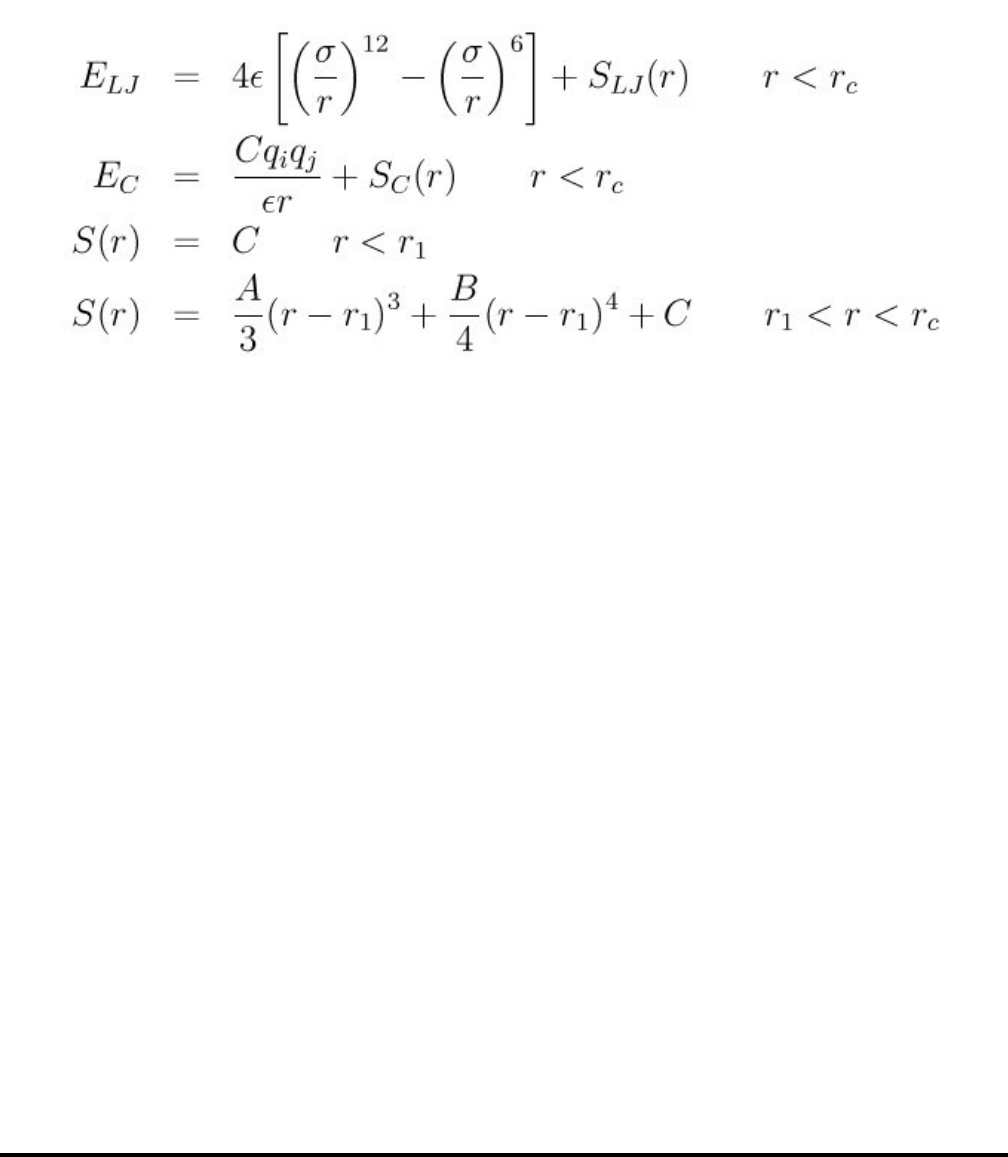 E_{LJ} = 4\epsilon \left[ \left( \frac{\sigma}{r} \right)^{12} - \left( \frac{\sigma}{r} \right)^{6} \right] + S_{LJ}(r) \qquad r < r_c
E_C = \frac{C q_i q_j}{\epsilon r} + S_C(r) \qquad r < r_c
S(r) = C \qquad r < r_1
S(r) = \frac{A}{3}(r - r_1)^3 + \frac{B}{4}(r - r_1)^4 + C \qquad r_1 < r < r_c